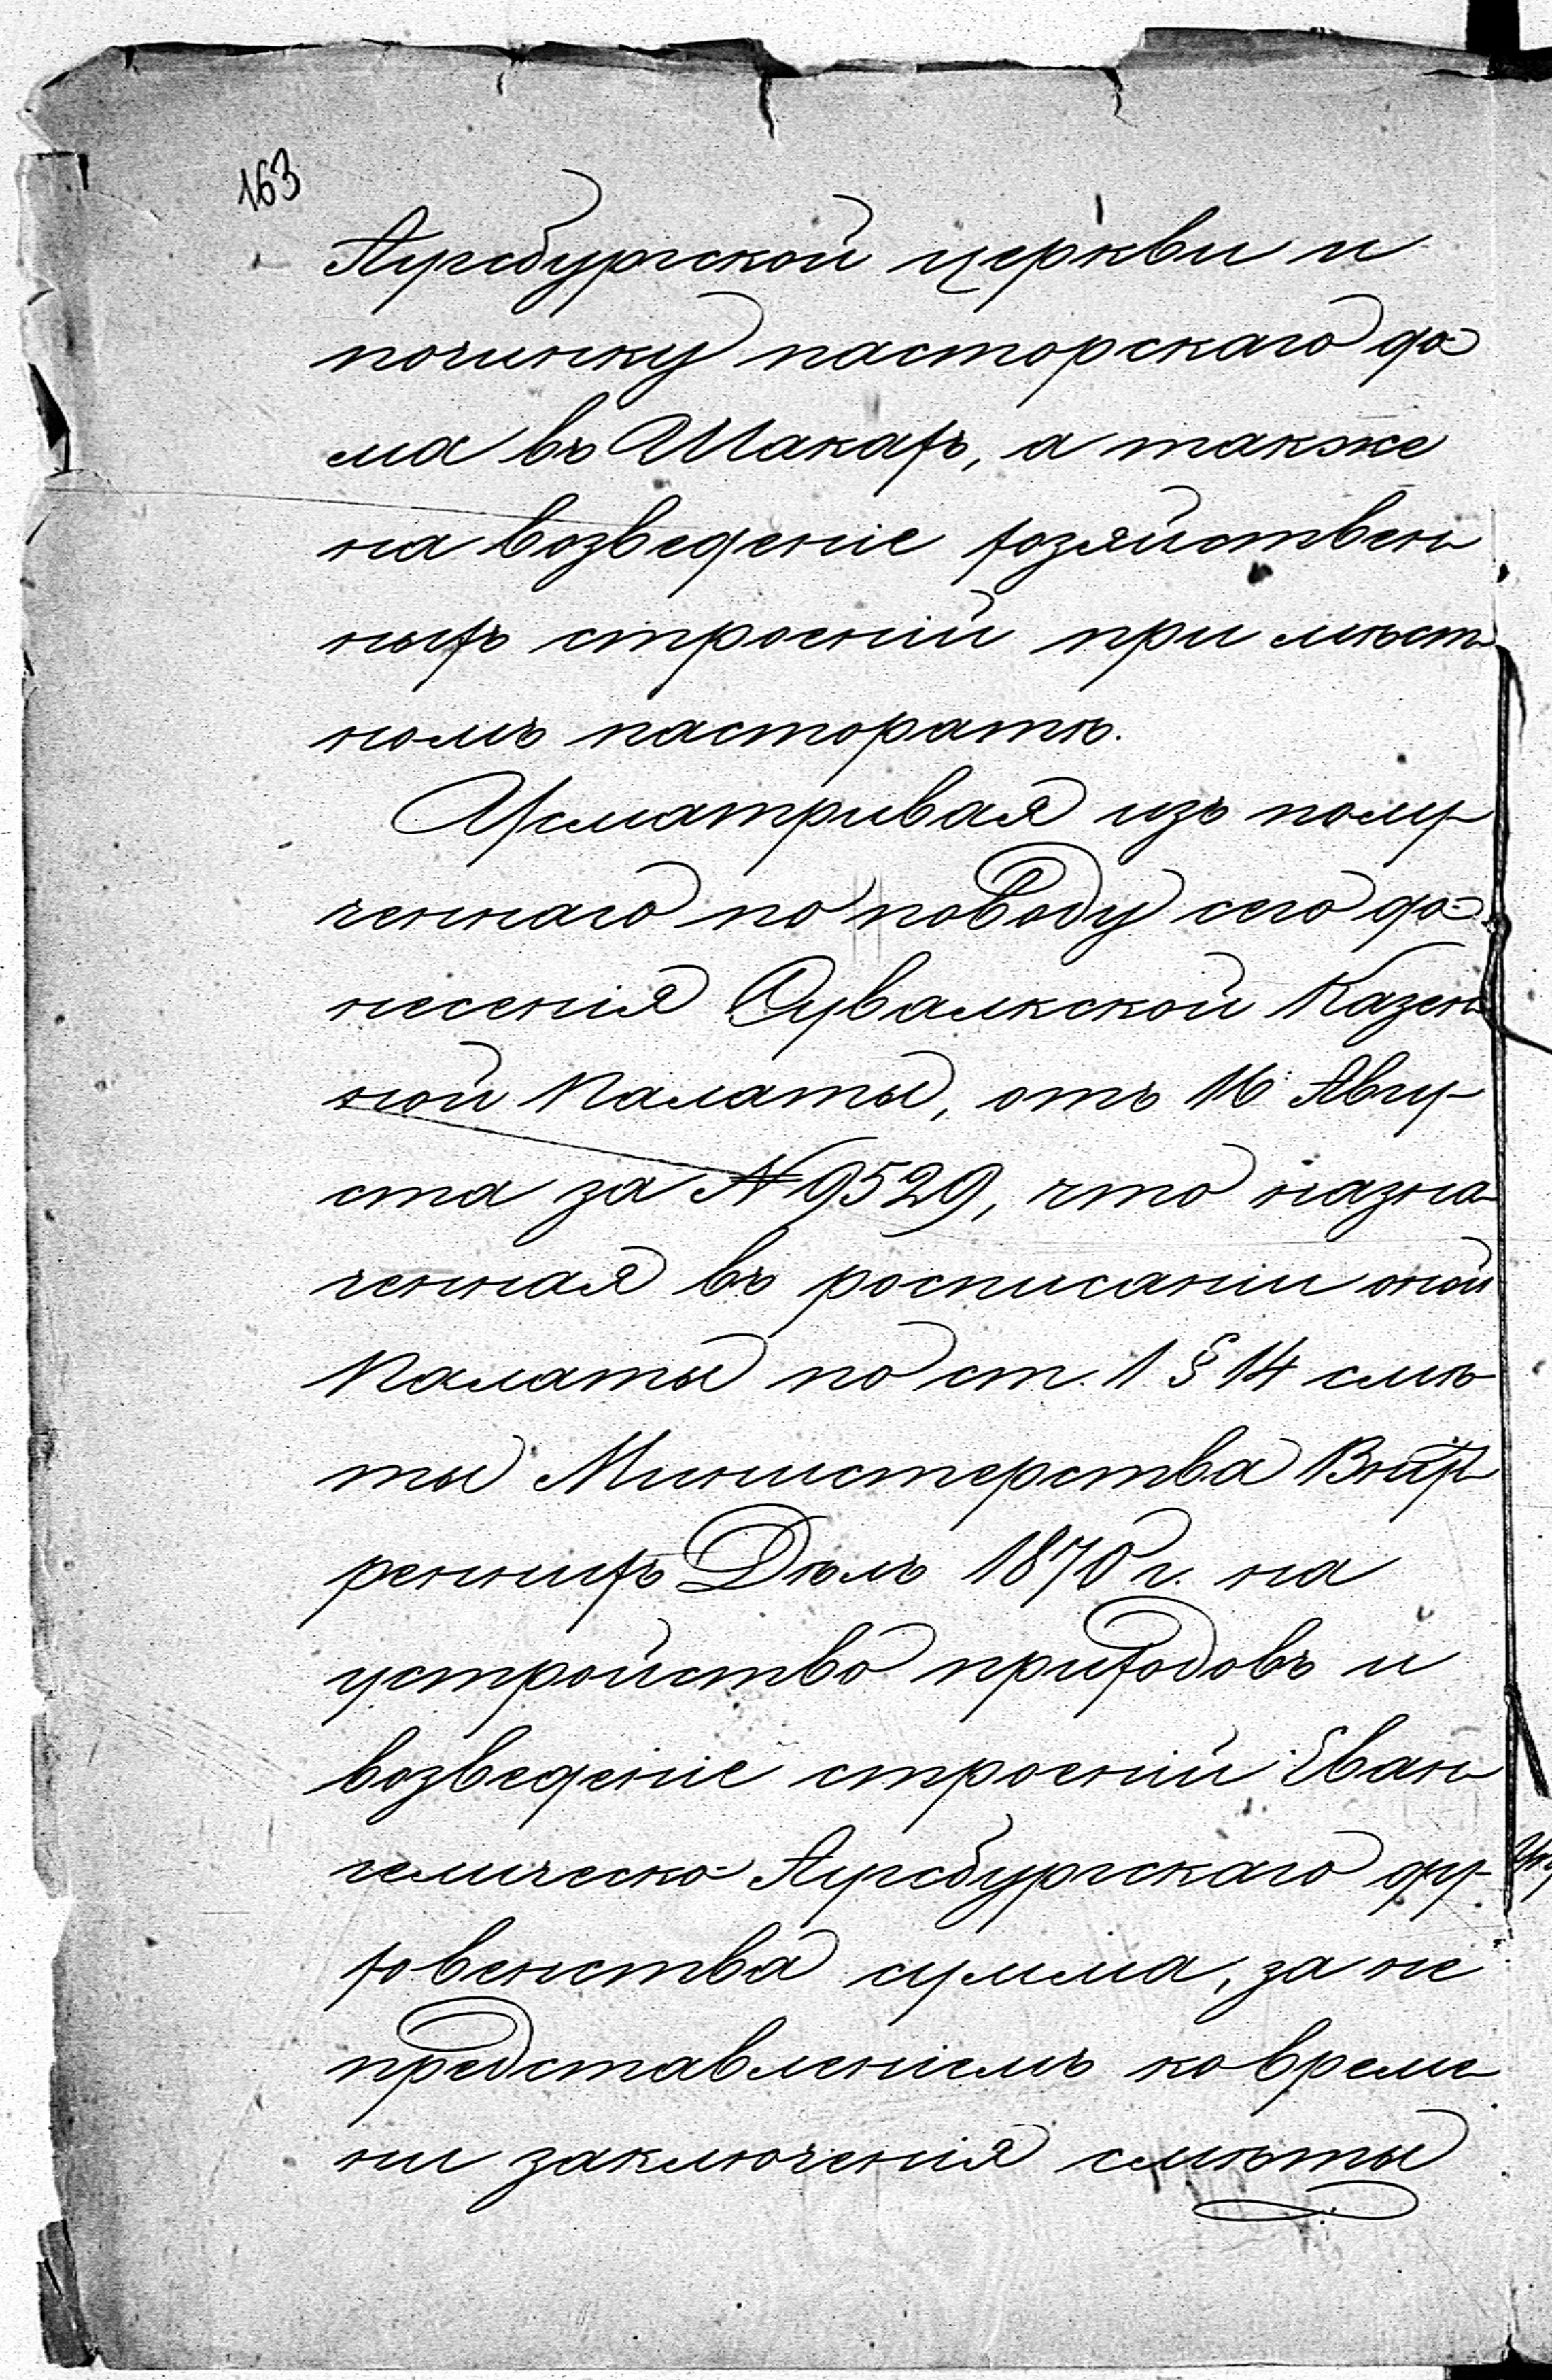 163
Аугсбургской церкви и
починку пасторскаго до-
ма въ Шакахъ, а также
на возведеніе хозяйствен-
ныхъ строеній при мѣст-
номъ пасторатѣ.
Усматривая изъ полу-
ченнаго по поводу сего до-
несенія Сувалкской Казен-
ной Палаты, отъ 16 Авгу-
ста за № 9529, что назна-
ченная въ росписаніи оной
Палаты по ст. 1 § 14 смѣ-
ты Министерства Внут-
реннихъ Дѣлъ 1870 г. на
устройство приходовъ и
возведеніе строеній Еван-
гелическо-Аугсбургскаго ду-
ховенства сумма, за не
представленіемъ ко време-
ни заключенія смѣты